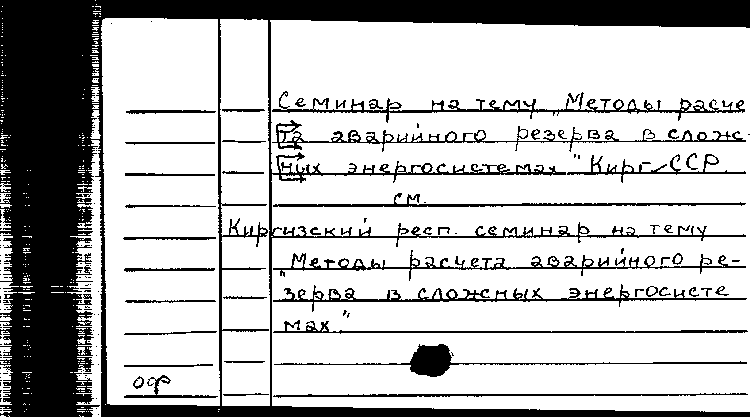 Семинар на тему „Методы расче
та аварийного резерва в слож-
ных энергосистемах" Кирг. ССР.
см.
Киргизский респ. семинар на тему
„Методы расчета аварийного ре-
зерва в сложных энергосисте
мах."
оф